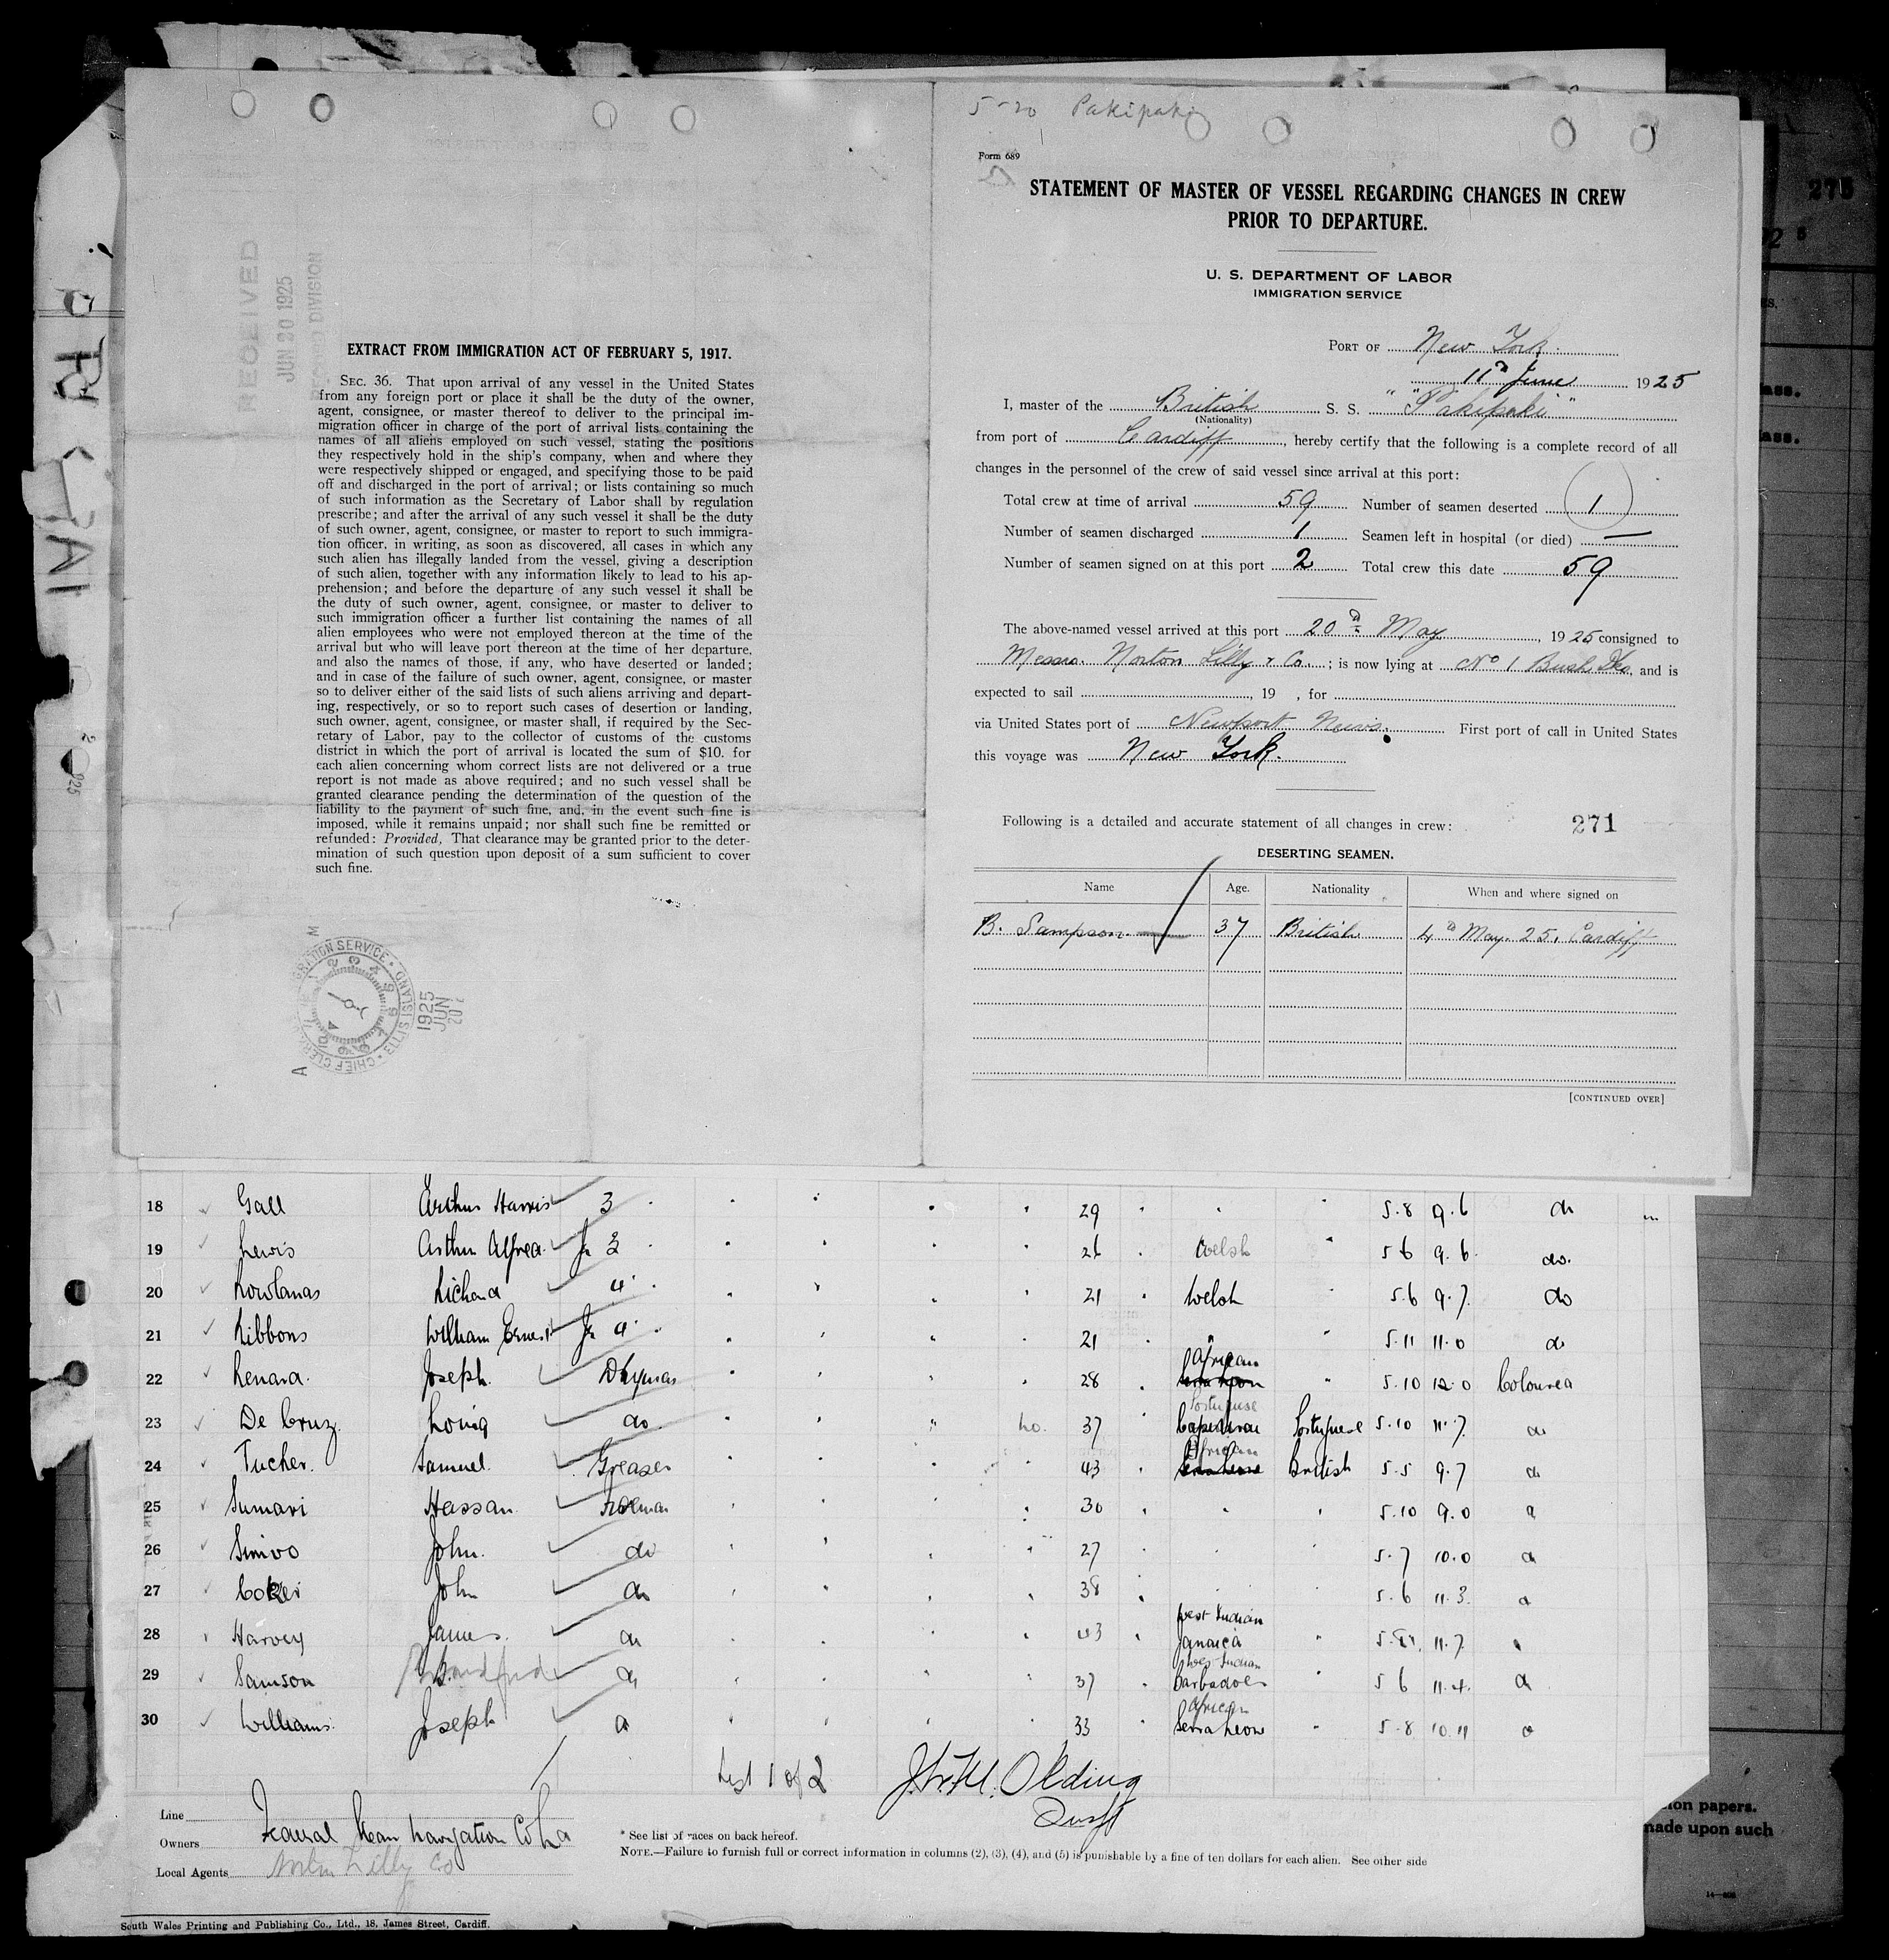 5-20 Pakipaki
Form 689
STATEMENT OF MASTER OF VESSEL REGARDING CHANGES IN CREW
PRIOR TO DEPARTURE.
U. S. DEPARTMENT OF LABOR
IMMIGRATION SERVICE
PORT OF New York.
11th June 1925
I, master of the British S. S. "Pakipaki"
(Nationality)
from port of Cardiff, hereby certify that the following is a complete record of all
changes in the personnel of the crew of said vessel since arrival at this port:
Total crew at time of arrival 59 Number of seamen deserted 1
Number of seamen discharged 1 Seamen left in hospital (or died) —
Number of seamen signed on at this port 2 Total crew this date 59
The above-named vessel arrived at this port 20th May, 1925 consigned to
Messrs. Norton Lilly & Co.; is now lying at No 1 Bush Dks, and is
expected to sail , 19 , for
via United States port of Newport News. First port of call in United States
this voyage was New York.
Following is a detailed and accurate statement of all changes in crew: 271
DESERTING SEAMEN.
Name Age. Nationality When and where signed on
B. Sampson 37 British 4th May. 25. Cardiff
[CONTINUED OVER]
RECEIVED
JUN 20 1925
RECORD DIVISION
EXTRACT FROM IMMIGRATION ACT OF FEBRUARY 5, 1917.
SEC. 36. That upon arrival of any vessel in the United States
from any foreign port or place it shall be the duty of the owner,
agent, consignee, or master thereof to deliver to the principal im-
migration officer in charge of the port of arrival lists containing the
names of all aliens employed on such vessel, stating the positions
they respectively hold in the ship's company, when and where they
were respectively shipped or engaged, and specifying those to be paid
off and discharged in the port of arrival; or lists containing so much
of such information as the Secretary of Labor shall by regulation
prescribe; and after the arrival of any such vessel it shall be the duty
of such owner, agent, consignee, or master to report to such immigra-
tion officer, in writing, as soon as discovered, all cases in which any
such alien has illegally landed from the vessel, giving a description
of such alien, together with any information likely to lead to his ap-
prehension; and before the departure of any such vessel it shall be
the duty of such owner, agent, consignee, or master to deliver to
such immigration officer a further list containing the names of all
alien employees who were not employed thereon at the time of the
arrival but who will leave port thereon at the time of her departure,
and also the names of those, if any, who have deserted or landed;
and in case of the failure of such owner, agent, consignee, or master
so to deliver either of the said lists of such aliens arriving and depart-
ing, respectively, or so to report such cases of desertion or landing,
such owner, agent, consignee, or master shall, if required by the Sec-
retary of Labor, pay to the collector of customs of the customs
district in which the port of arrival is located the sum of $10. for
each alien concerning whom correct lists are not delivered or a true
report is not made as above required; and no such vessel shall be
granted clearance pending the determination of the question of the
liability to the payment of such fine, and, in the event such fine is
imposed, while it remains unpaid; nor shall such fine be remitted or
refunded: Provided, That clearance may be granted prior to the deter-
mination of such question upon deposit of a sum sufficient to cover
such fine.
IMMIGRATION SERVICE · ELLIS ISLAND · CHIEF CLERK
1925 JUN 20
18 Gall Arthur Harris 3 29 5.8 9.6 do
19 Lewis Arthur Alfred Jr 3 26 Welsh 5 6 9.6 do.
20 Rowlands Richard 4 21 Welsh 5.6 9.7 do
21 Ribbons William Ernest Jr 4 21 " 5.11 11.0 do
22 Renard Joseph 28 African 5.10 12.0 Coloured
23 De Cruz Louiq do no. 37 Portuguese Portuguese 5.10 11.7 do
24 Tucker Samuel Greaser 43 African British 5.5 9.7 do
25 Sumari Hassan 30 5.10 9.0 do
26 Simvo John do 27 5.7 10.0 do
27 Coker John do 38 5.6 11.3 do
28 Harvey James do 43 West Indian Jamaica 11.7
29 Samson do 37 West Indian Barbadoes 5 6 11.4 do
30 Williams Joseph do 33 African Serra Leon 5.8 10.11 do
List 1 of 2
Olding
Line
Owners Federal Steam Navigation Co Ltd
Local Agents Norton Lilly Co
* See list of races on back hereof.
NOTE.—Failure to furnish full or correct information in columns (2), (3), (4), and (5) is punishable by a fine of ten dollars for each alien. See other side
South Wales Printing and Publishing Co., Ltd., 18, James Street, Cardiff.
275
ion papers.
made upon such